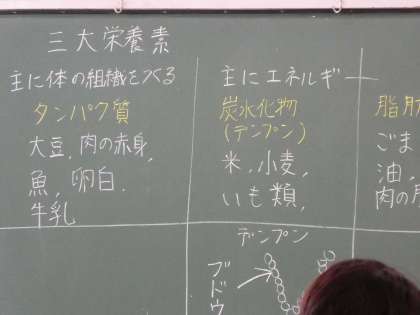 三大栄養素
主に体の組織をつくる
タンパク質
大豆、肉の赤身、
魚、卵白、
牛乳
主にエネルギー
炭水化物
(デンプン)
米、小麦、
いも類、
脂肪
ごま
油、
肉の
デンプン
ブドウ